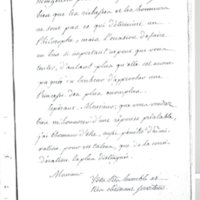 bien que les richesses et les honneurs
ne sont pas ce qui détermine un
Philosophe, mais l'occasion de faire
un bien si important
tenter, d'autant plus qu'elle est accom
pagnée du bonheur d'approcher une
Princesse des plus accomplies.
Espérant, Monsieur, que vous voudrez
bien m'honorer d'une réponse préalable,
j'ai l'honneur d'être, aussi pénétré d'admi
ration pour vos talens, que de la consi
dération la plus distinguée.
Monsieur
Votre très humble et
très obéissant serviteur